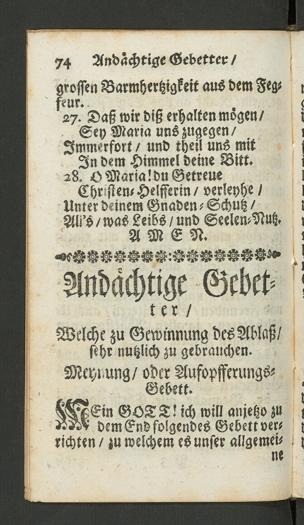 74 Andächtige Gebetter /
grossen Barmhertzigkeit aus dem Feg-
feur.
27. Daß wir diß erhalten mögen /
Sey Maria uns zugegen /
Immerfort / und theil uns mit
In dem Himmel deine Bitt.
28. O Maria! du Getreue
Christen-Helfferin / verleyhe /
Unter deinem Gnaden-Schutz /
All's / was Leibs / und Seelen-Nutz.
AMEN.
Andächtige Gebet-
ter /
Welche zu Gewinnung des Ablaß /
sehr nutzlich zu gebrauchen.
Meynung / oder Aufopfferungs-
Gebett.
MEin GOTT! ich will anjetzo zu
dem End folgendes Gebett ver-
richten / zu welchem es unser allgemei-
ne